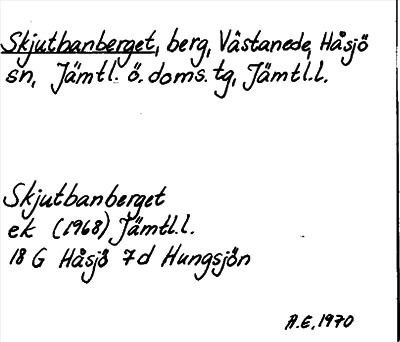 Skjutbanberget, berg, Västanede, Håsjö
sn, Jämtl. ö. doms. tg, Jämtl.l.
Skjutbanberget
ek (1968) Jämtl.l.
18 G Håsjö 7d Hungsjön
A.E. 1970